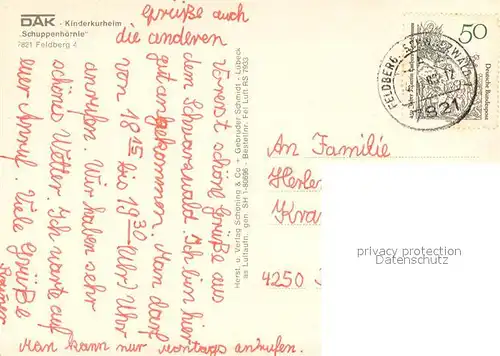 DAK - Kinderkurheim
"Schuppenhörnle"
7821 Feldberg 4
Vorerst schöne Grüße aus
dem Schwarzwald. Ich bin hier
gut angekommen. Man darf
von 18 15 bis 19 30 (Uhr) Uhr
anrufen. Wir haben sehr
schönes Wetter. Ich warte auf
euer Anruf. Viele Grüße
Rainer
Man kann nur Montags anrufen.
Grüße auch
die anderen
Herst. u. Verlag Schöning & Co + Gebrüder Schmidt - Lübeck
als Luftaufn. gen. SH 1-80696 - Bestellnr. Fel Luft RS 7933
FELDBERG, SCHWARZWALD 1
7821
50
Deutsche Bundespost
An Familie
4250
privacy protection
Datenschutz